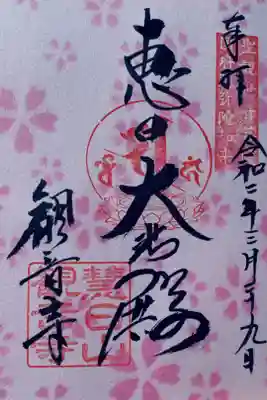 奉拝
令和二年三月二十九日
恵日大悲殿
観音寺
慧日山
観音寺